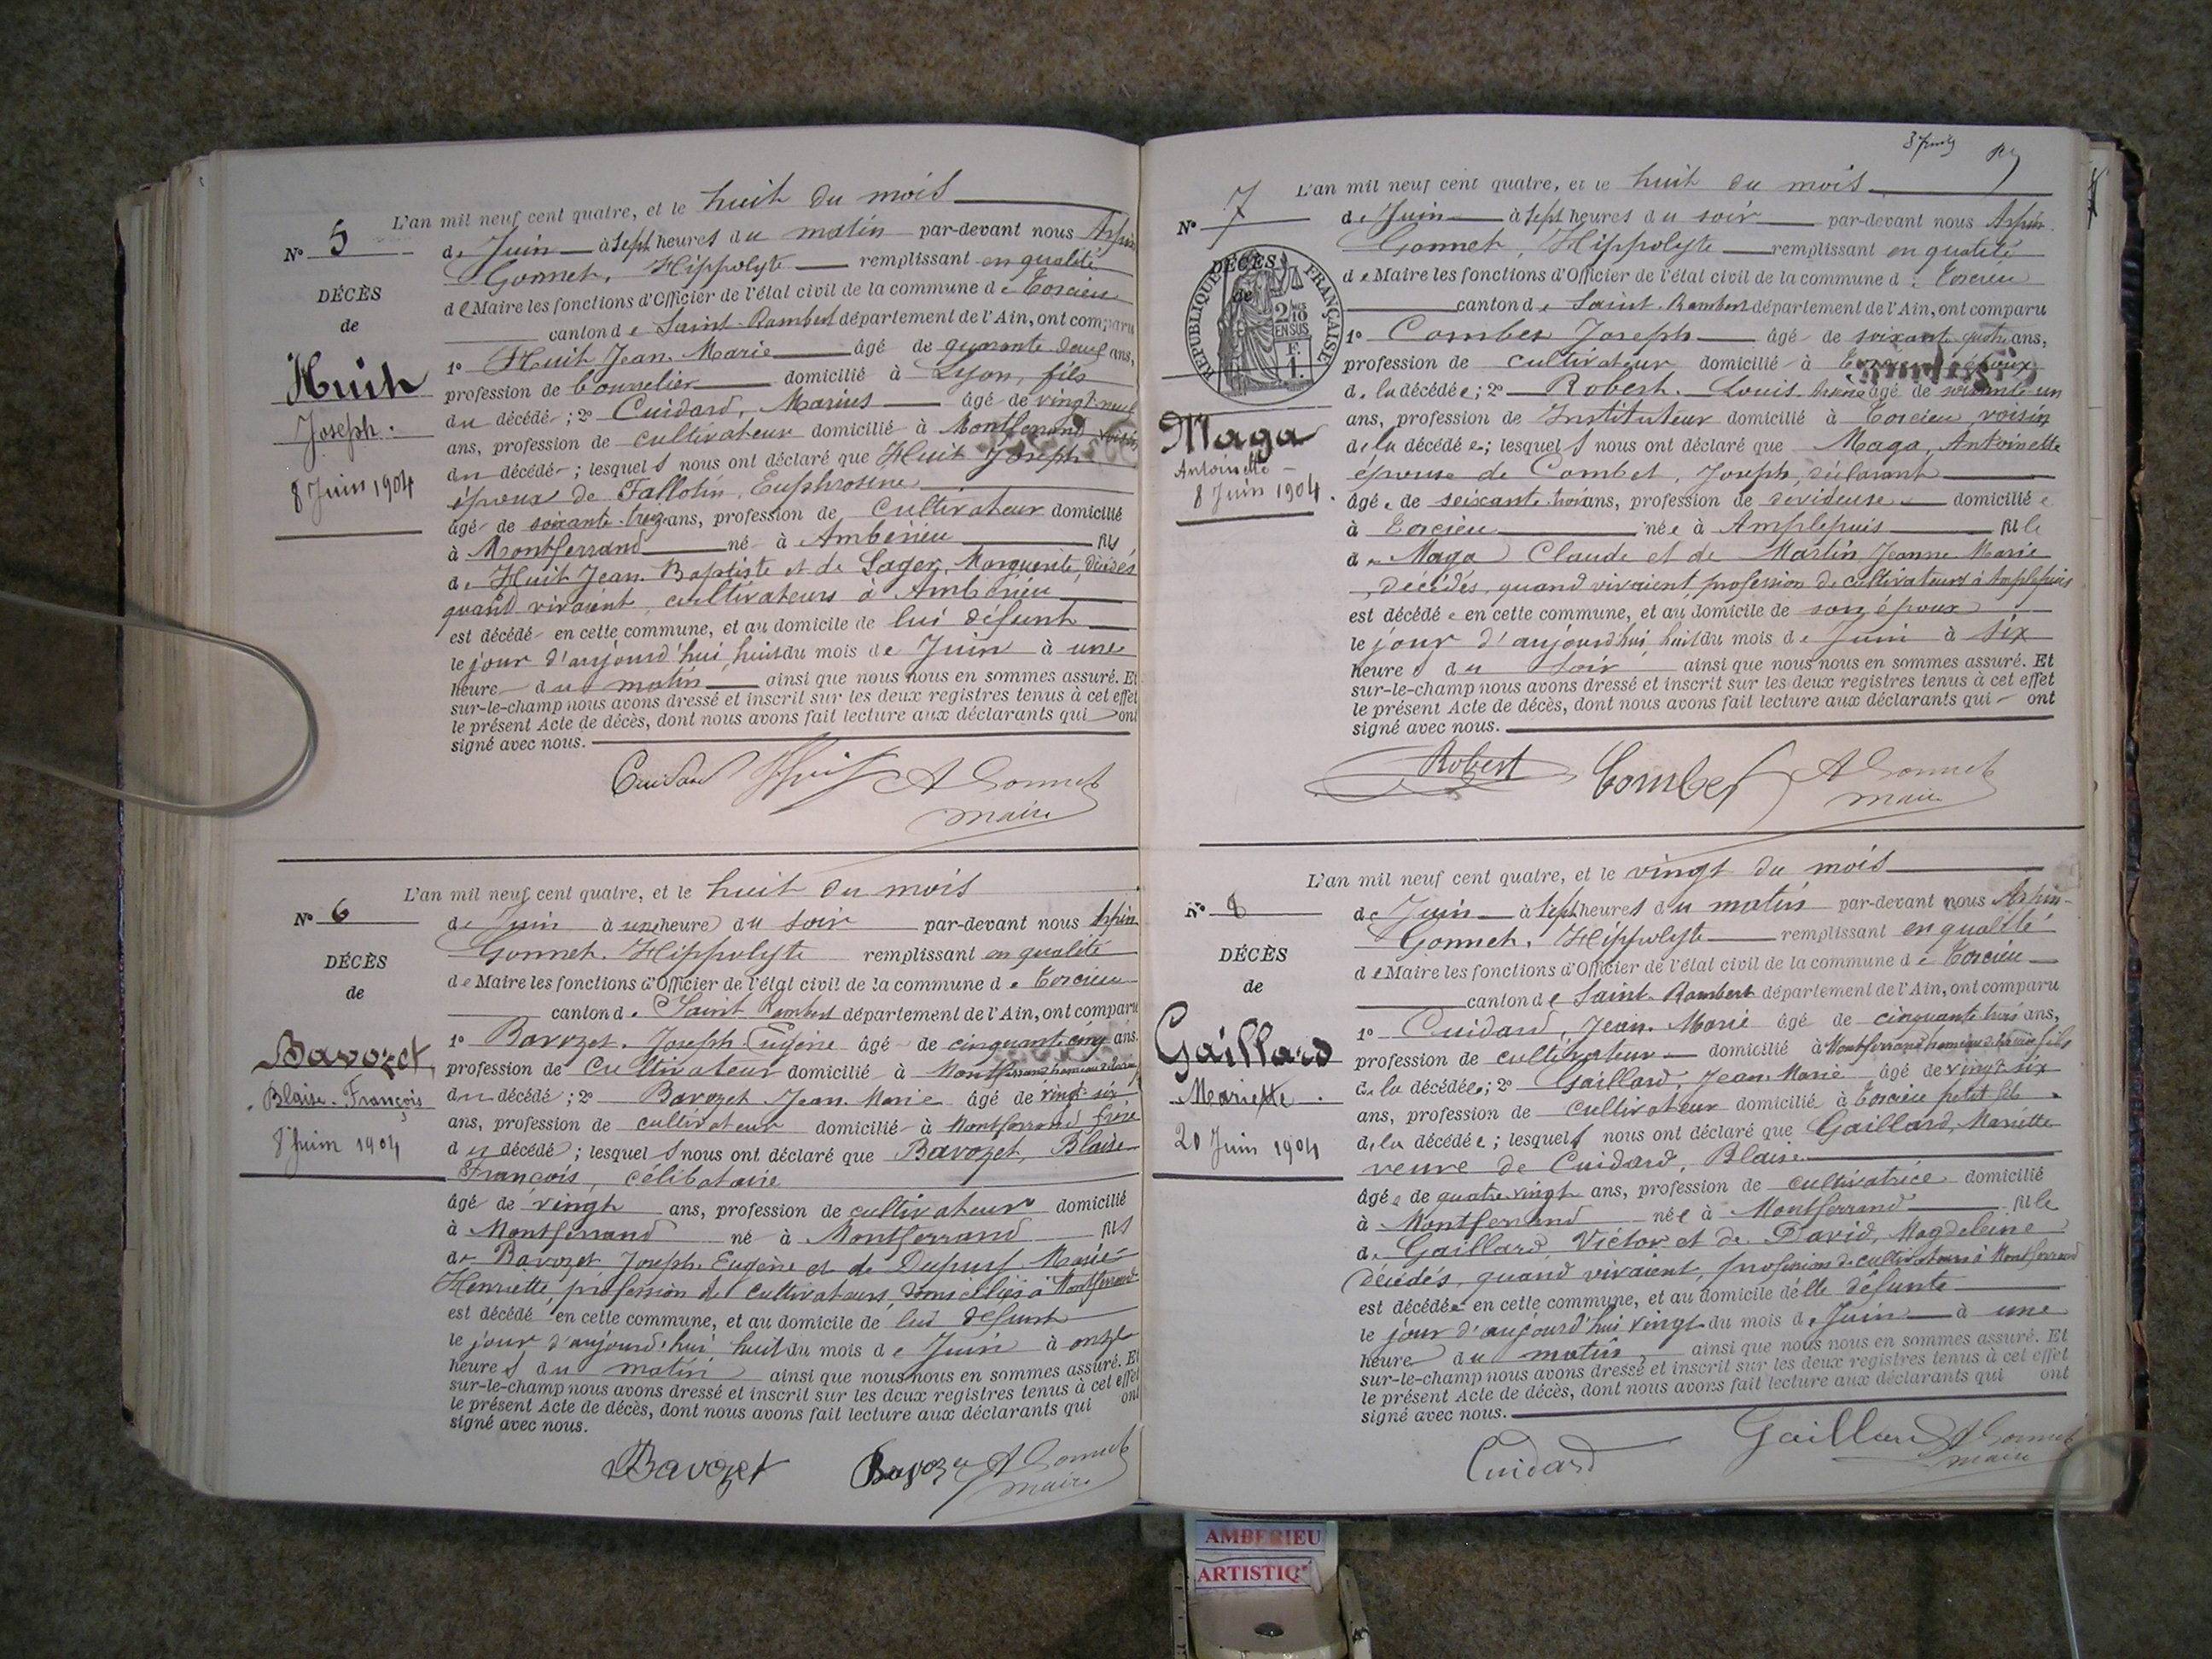 L'an mil neuf cent quatre, et le huit du mois
N° 5
DÉCÈS
de
Huit
Joseph.
8 Juin 1904
de Juin à sept heures du matin par-devant nous Arpin
Gonnet, Hippolyte remplissant en qualité
de Maire les fonctions d'Officier de l'état civil de la commune de Torcieu
canton de Saint-Rambert département de l'Ain, ont comparu
1° Huit Jean-Marie âgé de quarante deux ans,
profession de tonnelier domicilié à Lyon, fils
du décédé; 2° Cuidard, Marius âgé de vingt-neuf
ans, profession de cultivateur domicilié à Montferrand voisin
du décédé; lesquels nous ont déclaré que Huit Joseph
époux de Fallotin, Euphrosine
âgé de soixante-treize ans, profession de cultivateur domicilié
à Montferrand né à Ambérieu fils
de Huit Jean-Baptiste et de Lager, Marguerite, décédés
quand vivaient, cultivateurs à Ambérieu
est décédé en cette commune, et au domicile de lui défunt
le jour d'aujourd'hui, huit du mois de Juin à une
heure du matin ainsi que nous nous en sommes assuré. Et
sur-le-champ nous avons dressé et inscrit sur les deux registres tenus à cet effet
le présent Acte de décès, dont nous avons fait lecture aux déclarants qui ont
signé avec nous.
Cuidard Huit A Gonnet
maire
L'an mil neuf cent quatre, et le huit du mois
N° 6
DÉCÈS
de
Bavozet
Blaise-François
8 Juin 1904
de Juin à une heure du soir par-devant nous Arpin
Gonnet, Hippolyte remplissant en qualité
de Maire les fonctions d'Officier de l'état civil de la commune de Torcieu
canton de Saint Rambert département de l'Ain, ont comparu
1° Bavozet, Joseph Eugène âgé de cinquante cinq ans,
profession de cultivateur domicilié à Montferrand hameau de Torcieu
du décédé; 2° Bavozet Jean-Marie âgé de vingt-six
ans, profession de cultivateur domicilié à Montferrand frère
du décédé; lesquels nous ont déclaré que Bavozet, Blaise
François, célibataire
âgé de vingt ans, profession de cultivateur domicilié
à Montferrand né à Montferrand fils
de Bavozet Joseph Eugène et de Dupuy Marie
Henriette, profession de cultivateurs, domiciliés à Montferrand
est décédé en cette commune, et au domicile de lui défunt
le jour d'aujourd'hui huit du mois de Juin à onze
heures du matin ainsi que nous nous en sommes assuré. Et
sur-le-champ nous avons dressé et inscrit sur les deux registres tenus à cet effet
le présent Acte de décès, dont nous avons fait lecture aux déclarants qui ont
signé avec nous.
Bavozet Bavozet A Gonnet
maire
L'an mil neuf cent quatre, et le huit du mois
N° 7
DÉCÈS
de
RÉPUBLIQUE FRANÇAISE
2/10 EN SUS
F. 1.
Maga
Antoinette
8 Juin 1904.
de Juin à sept heures du soir par-devant nous Arpin
Gonnet, Hippolyte remplissant en qualité
de Maire les fonctions d'Officier de l'état civil de la commune de Torcieu
canton de Saint-Rambert département de l'Ain, ont comparu
1° Combet Joseph âgé de soixante quatre ans,
profession de cultivateur domicilié à Torcieu époux
de la décédée; 2° Robert, Louis âgé de soixante un
ans, profession de Instituteur domicilié à Torcieu, voisin
de la décédée; lesquels nous ont déclaré que Maga, Antoinette
épouse de Combet, Joseph, déclarant
âgée de soixante trois ans, profession de dévideuse domiciliée
à Torcieu née à Amplepuis fille
de Maga Claude et de Martin Jeanne Marie
décédés, quand vivaient, profession de cultivateurs à Amplepuis
est décédée en cette commune, et au domicile de son époux
le jour d'aujourd'hui, huit du mois de Juin à six
heures du soir ainsi que nous nous en sommes assuré. Et
sur-le-champ nous avons dressé et inscrit sur les deux registres tenus à cet effet
le présent Acte de décès, dont nous avons fait lecture aux déclarants qui ont
signé avec nous.
Robert Combet A Gonnet
maire
L'an mil neuf cent quatre, et le vingt du mois
N° 8
DÉCÈS
de
Gaillard
Mariette.
20 Juin 1904
de Juin à sept heures du matin par-devant nous Arpin-
Gonnet, Hippolyte remplissant en qualité
de Maire les fonctions d'Officier de l'état civil de la commune de Torcieu
canton de Saint-Rambert département de l'Ain, ont comparu
1° Cuidard, Jean-Marie âgé de cinquante trois ans,
profession de cultivateur domicilié à Montferrand hameau de Torcieu fils
de la décédée; 2° Gaillard, Jean-Marie âgé de vingt-six
ans, profession de cultivateur domicilié à Torcieu petit fils
de la décédée; lesquels nous ont déclaré que Gaillard, Mariette
veuve de Cuidard, Blaise
âgée de quatre vingt ans, profession de cultivatrice domicilié
à Montferrand née à Montferrand fille
de Gaillard, Victor et de David, Magdeleine
décédés, quand vivaient, profession de cultivateurs à Montferrand
est décédée en cette commune, et au domicile d'elle défunte
le jour d'aujourd'hui vingt du mois de Juin à une
heure du matin, ainsi que nous nous en sommes assuré. Et
sur-le-champ nous avons dressé et inscrit sur les deux registres tenus à cet effet
le présent Acte de décès, dont nous avons fait lecture aux déclarants qui ont
signé avec nous.
Cuidard Gaillard A Gonnet
maire
AMBERIEU
ARTISTIQ